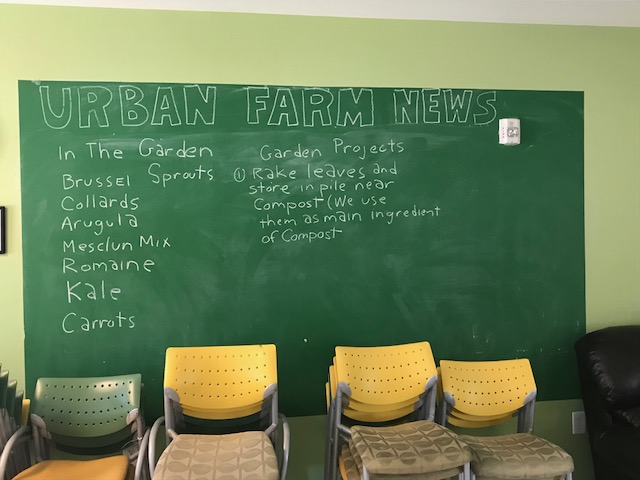 URBAN FARM NEWS
In The Garden
Brussel Sprouts
Collards
Arugula
Mesclun Mix
Romaine
Kale
Carrots
Garden Projects
① Rake leaves and
store in pile near
Compost (We use
them as main ingredient
of Compost